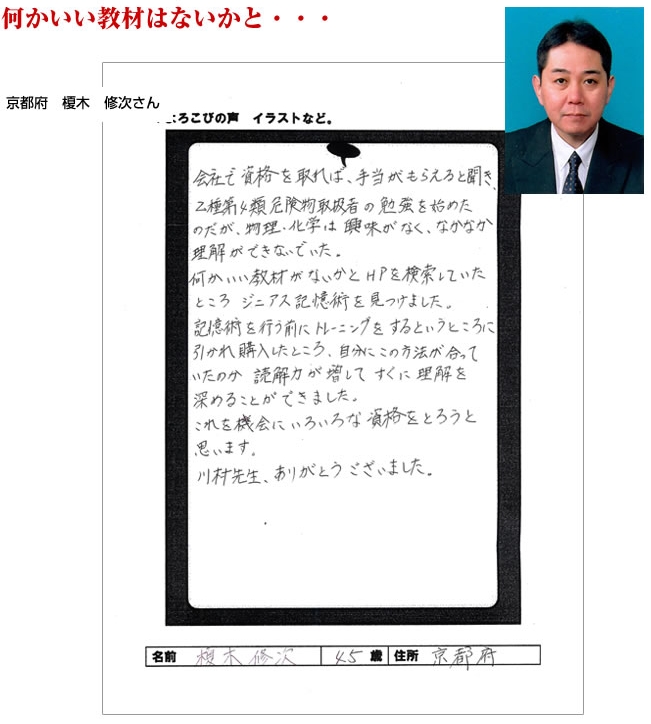 何かいい教材はないかと・・・
京都府　榎木　修次さん
よろこびの声　イラストなど。
会社で資格を取れば、手当がもらえると聞き、
乙種第4類危険物取扱者の勉強を始めた
のだが、物理・化学は興味がなく、なかなか
理解ができないでいた。
何かいい教材がないかとHPを検索していた
ところ ジニアス記憶術を見つけました。
記憶術を行う前にトレーニングをするというところに
引かれ購入したところ、自分にこの方法が合って
いたのか 読解力が増して すぐに理解を
深めることができました。
これを機会にいろいろな資格をとろうと
思います。
川村先生、ありがとうございました。
名前 榎木修次 45 歳 住所 京都府